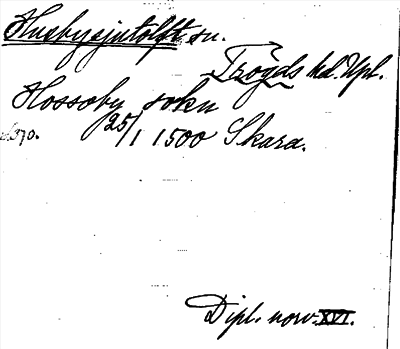 Husbysjutolft sn.
Trögds hd. Upl.
Hossoby sokn
25/1 1500 Skara.
s. 370.
Dipl. norv. XVI.